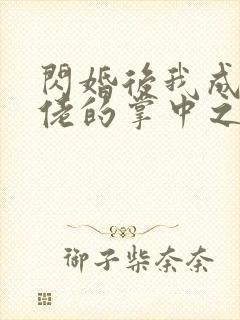 閃婚後我成
佬的掌中之
御子柴奈奈